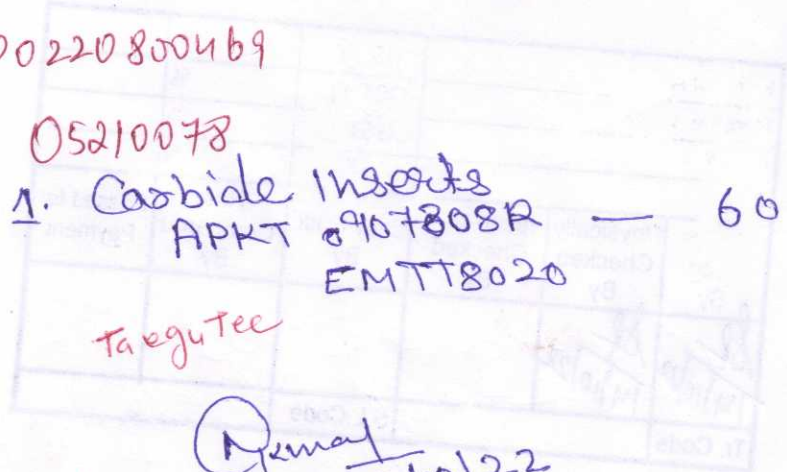 00220800469
05210078
1. Carbide Inserts
APKT 0907808R — 60
EMTT8020
TaeguTec